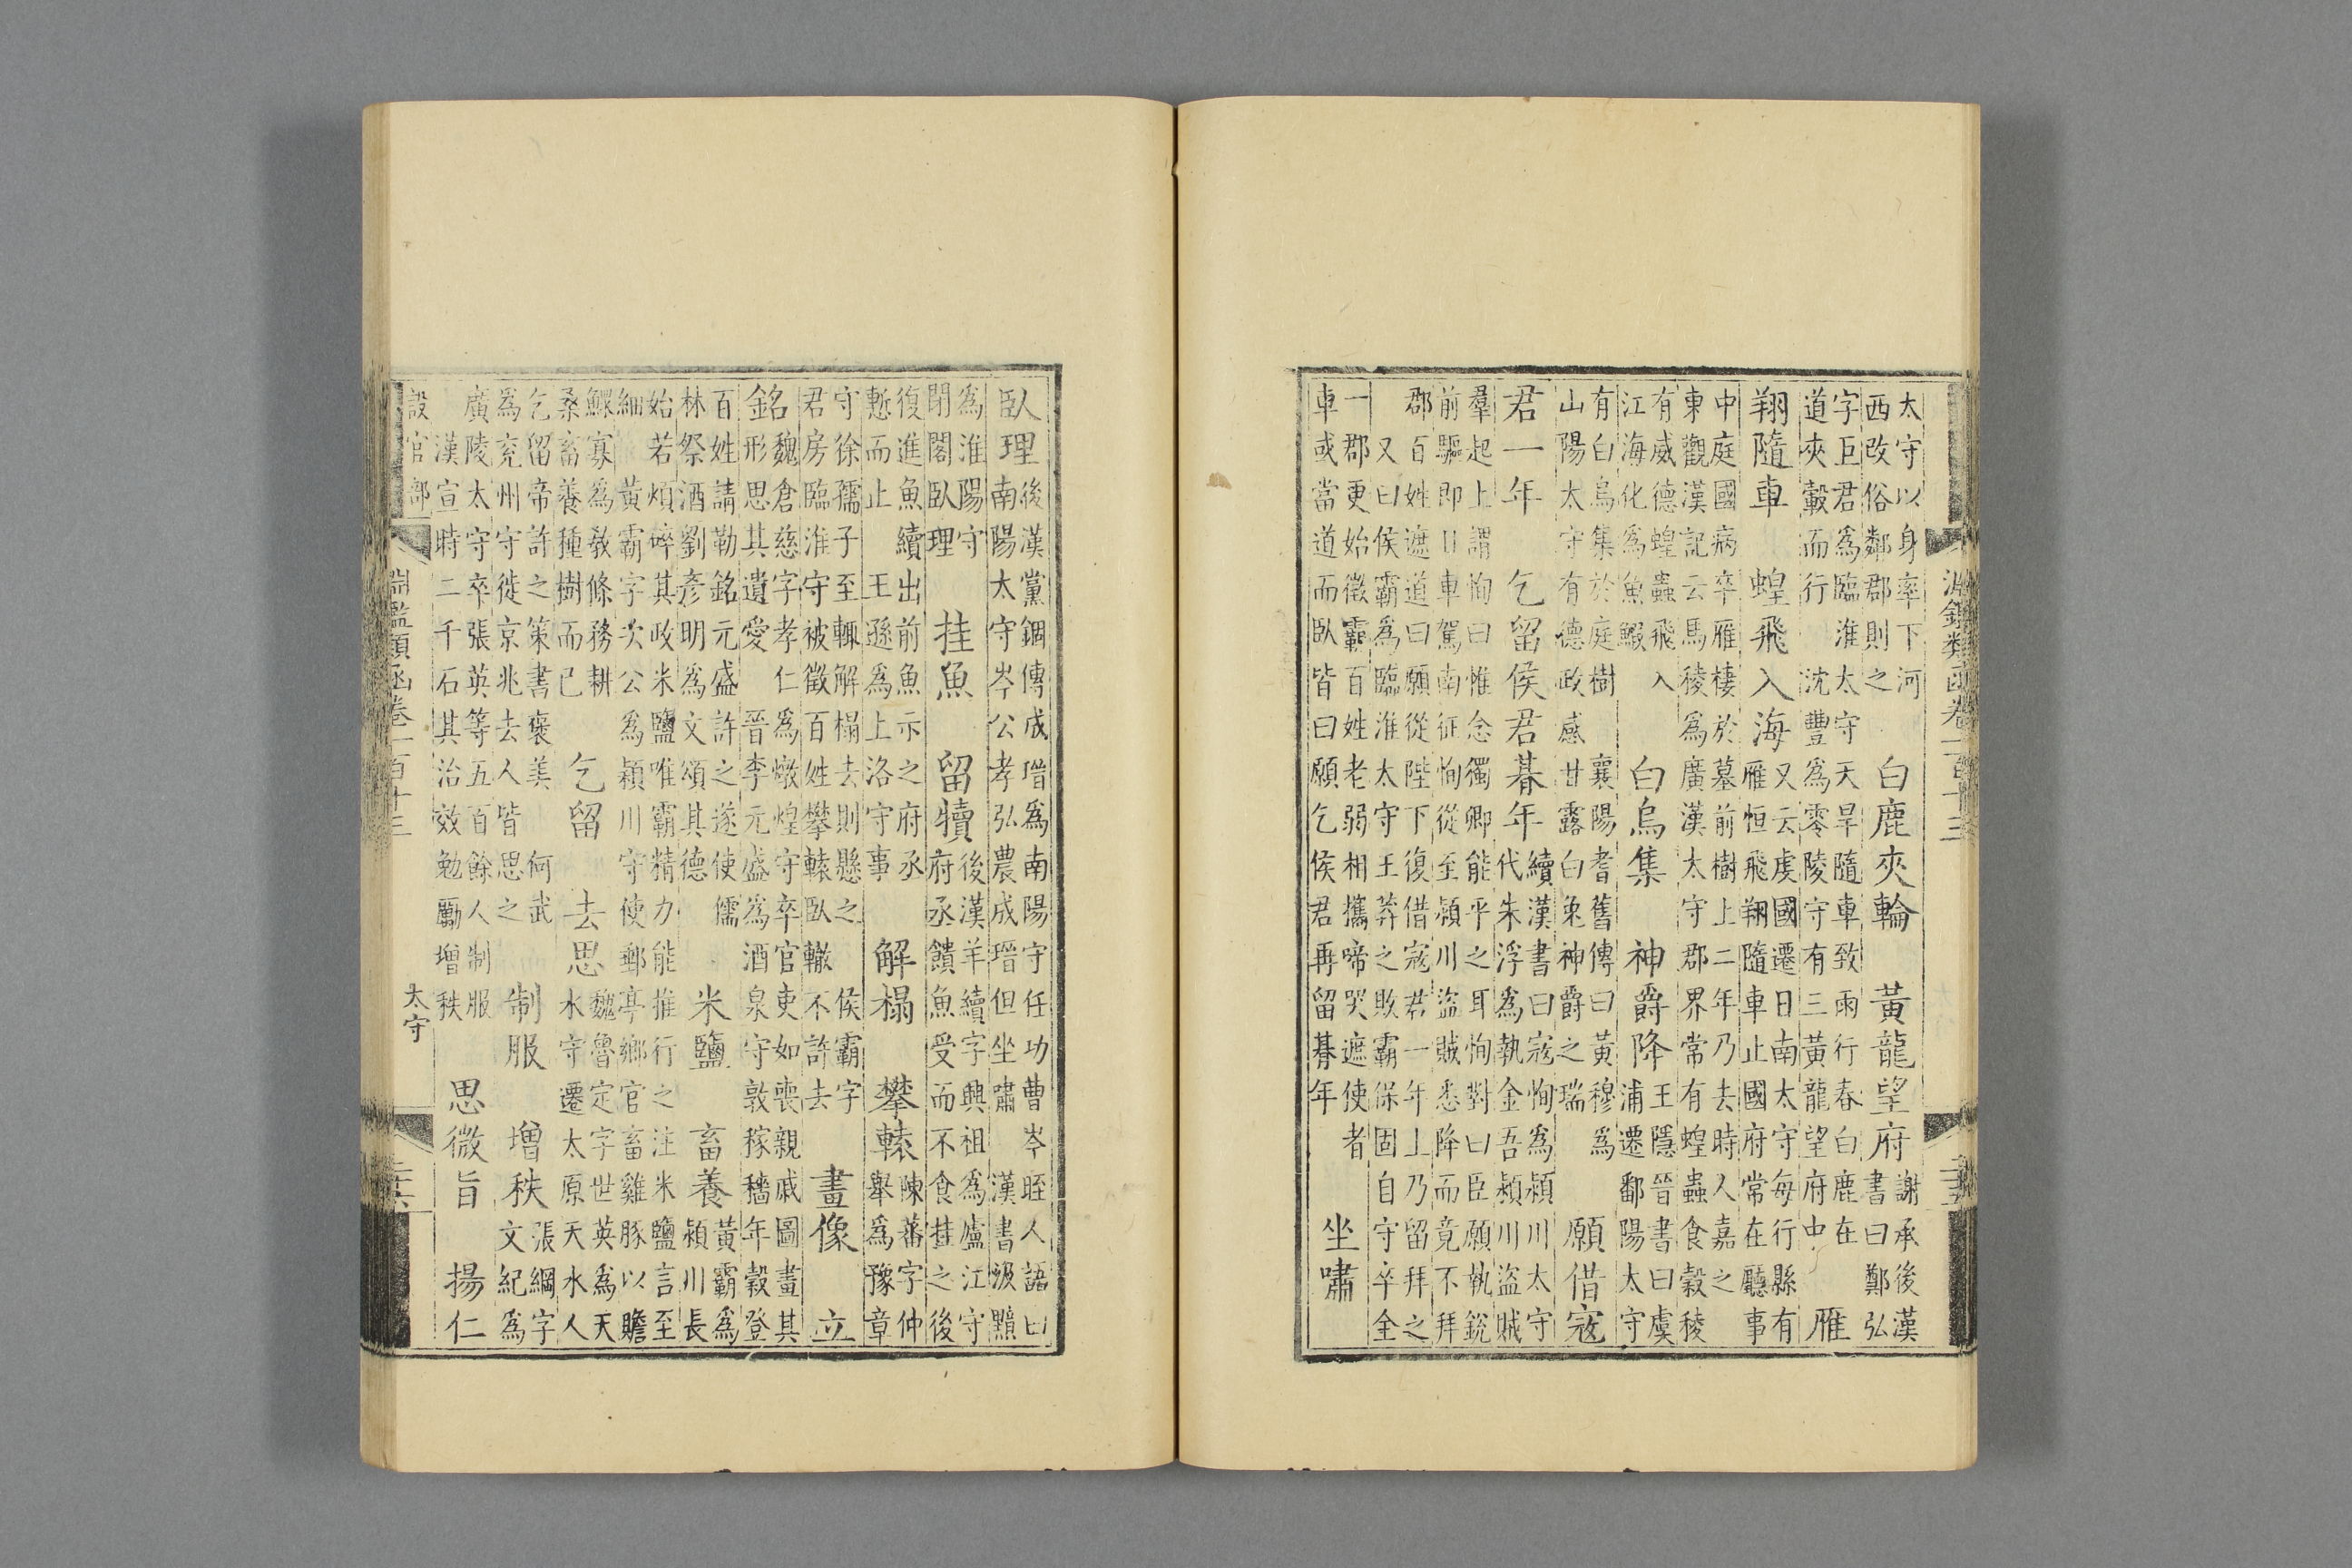 淵鑑類函卷一百十三 二十五
太守以身率下河
西改俗鄰郡則之
白鹿夾輪 黃龍望府
謝承後漢
書曰鄭弘
字巨君為臨淮太守天旱隨車致雨行春白鹿在
道夾轂而行 沈豐為零陵守有三黃龍望府中
雁
翔隨車 蝗飛入海
又云虞國遷日南太守每行縣有
雁恒飛翔隨車止國府常在廳事
中庭國病卒雁棲於墓前樹上二年乃去時人嘉之
東觀漢記云馬稜為廣漢太守郡界常有蝗蟲食穀稜
有威德蝗蟲飛入
江海化為魚鰕
白烏集 神爵降
王隱晉書曰虞
浦遷鄱陽太守
有白烏集於庭樹 襄陽耆舊傳曰黃穆為
山陽太守有德政感甘露白兔神爵之瑞
願借寇
君一年 乞留侯君朞年
續漢書曰寇恂為潁川太守
代朱浮為執金吾潁川盜賊
羣起上謂恂曰惟念獨卿能平之耳恂對曰臣願執銳
前驅即日車駕南征恂從至潁川盜賊悉降而竟不拜
郡百姓遮道曰願從陛下復借寇君一年上乃留拜之
又曰侯霸為臨淮太守王莽之敗霸保固自守卒全
一郡更始徵霸百姓老弱相攜啼哭遮使者
車或當道而臥皆曰願乞侯君再留朞年
坐嘯
臥理
後漢黨錮傳成瑨為南陽守任功曹岑晊人語曰
南陽太守岑公孝弘農成瑨但坐嘯 漢書汲黯
為淮陽守
閉閣臥理
挂魚 留犢
後漢羊續字興祖為廬江守
府丞饋魚受而不食挂之後
復進魚續出前魚示之府丞
慙而止 王遜為上洛守事
解榻 攀轅
陳蕃字仲
舉為豫章
守徐孺子至輒解榻去則懸之 侯霸字
君房臨淮守被徵百姓攀轅臥轍不許去
畫像 立
銘
魏倉慈字孝仁為燉煌守卒官吏如喪親戚圖畫其
形思其遺愛 晉李元盛為酒泉守敦稼穡年穀登
百姓請勒銘元盛許之遂使儒
林祭酒劉彥明為文頌其德
米鹽 畜養
黃霸為
潁川長
始若煩碎其政米鹽唯霸精力能推行之 注米鹽言至
細 黃霸字次公為潁川守使郵亭鄉官畜雞豚以贍
鰥寡為教條務耕
桑畜養種樹而已
乞留 去思
魏魯定字世英為天
水守遷太原天水人
乞留帝許之策書褒美 何武
為兗州守徙京兆去人皆思之
制服 增秩
張綱字
文紀為
廣陵太守卒張英等五百餘人制服
漢宣時二千石其治效勉勵增秩
思微旨 揚仁
設官部 淵鑑類函卷一百十三 太守 二十六